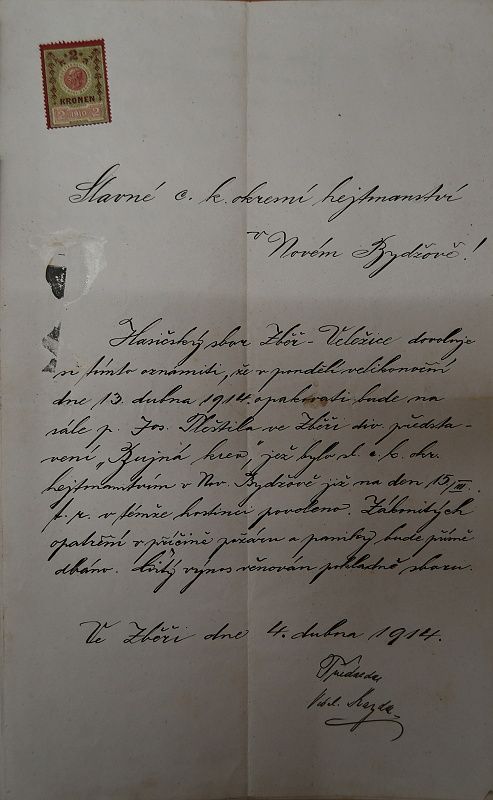 2
KRONEN
2 1910 2
Slavné c. k. okresní hejtmanství
v
Novém Bydžově!
Hasičský sbor Zběř - Veležice dovoluje
si tímto oznámiti, že v pondělí velikonoční
dne 13. dubna 1914 opakovati bude na
sále p. Jos. Pleštila ve Zběři div. představení
„Bujná krev", jež bylo sl. c. k. okr.
hejtmanstvím v Nov. Bydžově již na den 15/III.
t. r. v témže hostinci povoleno. Zákonitých
opatření v příčině požáru a paniky bude přísně
dbáno. Čistý výnos věnován pokladně sboru.
Ve Zběři dne 4. dubna 1914.
Předseda